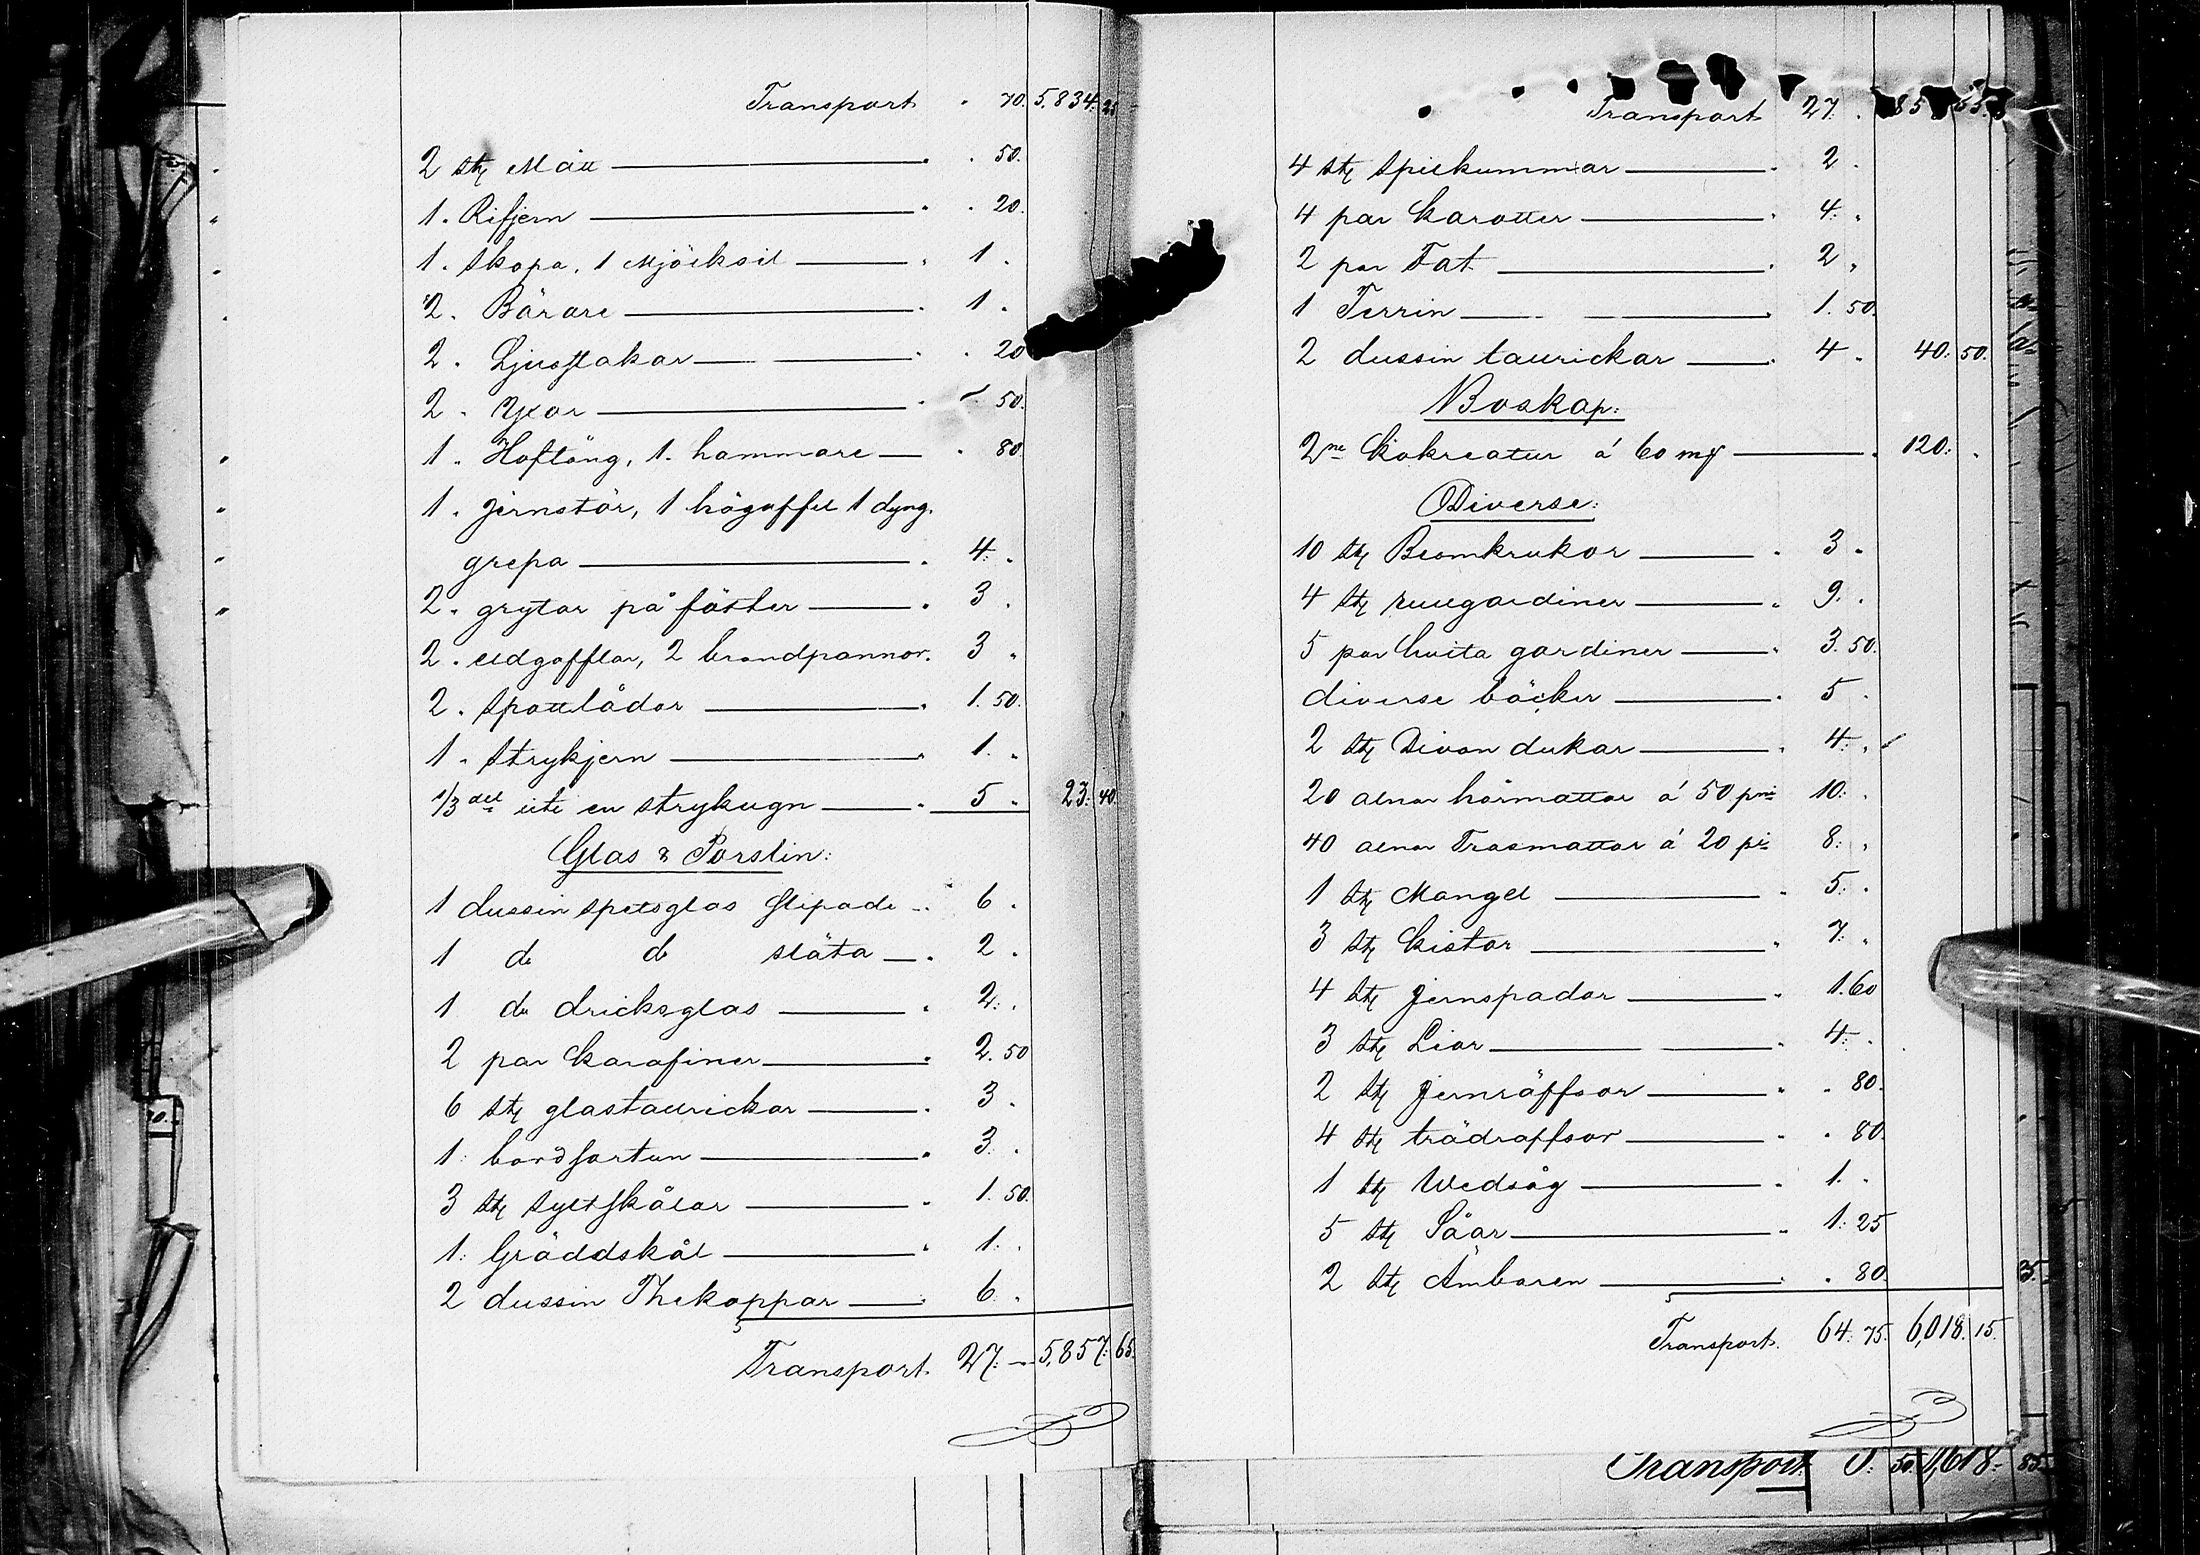 Transport " 70. 5,834. 25
2 stq Mått " . 50.
1. Rifjern " . 20.
1. Skopa, 1 Mjölksil " 1 .
2. Bärare " 1 .
2. Ljusstakar " . 20
2. Yxor " 50.
1. Hoftång, 1. hammare " 80
1. Jernstör, 1 högaffel 1 dyng.
grepa " 4: "
2. grytor på fötter " 3 .
2. eldgafflar, 2 brandpannor. 3 "
2. Spottlådor " 1. 50.
1. Strykjern " 1. "
1/3 del uti en strykugn " 5 " 23: 40
Glas & Porslin:
1 dussin spetsglas slipade " 6 .
1 do do släta " 2 .
1 do dricksglas " 2: .
2 par karafiner " 2. 50
6 stq glastallrickar " 3 .
1: bordfortun " 3: .
3 stq syltskålar " 1. 50.
1: Gräddskål " 1: .
2 dussin Thekoppar " 6 .
Transport 27: — 5,857: 65.
Transport 27. . 85 65.
4 stq spilkummar " 2 .
4 par karotter " 4: "
2 par Fat " 2 "
1 Terrin " 1. 50.
2 dussin tallrickar " 4 " 40: 50.
Boskap:
2ne Kokreatur á 60 mk " 120: .
Diverse:
10 stq Blomkrukor " 3 "
4 stq rullgardiner " 9. .
5 par hvita gardiner " 3. 50.
diverse böcker " 5 .
2 stq Divan dukar " 4: "
20 alnar hårmattor á 50 pni 10: .
40 alnar Trasmattor á 20 pi 8: "
1 stq Mangel " 5: .
3 stq Kistor " 7: "
4 stq Jernspador " 1.60
3 stq Liar " 4: .
2 stq Jernräffsor " . 80.
4 stq trädräffsor " . 80.
1 stq Wedsåg " 1. .
5 stq Såar " 1: 25
2 stq Ämbaren " . 80. 35.
Transport. 64: 75. 6,018. 15.
Transport. 50. 1,618- 85.